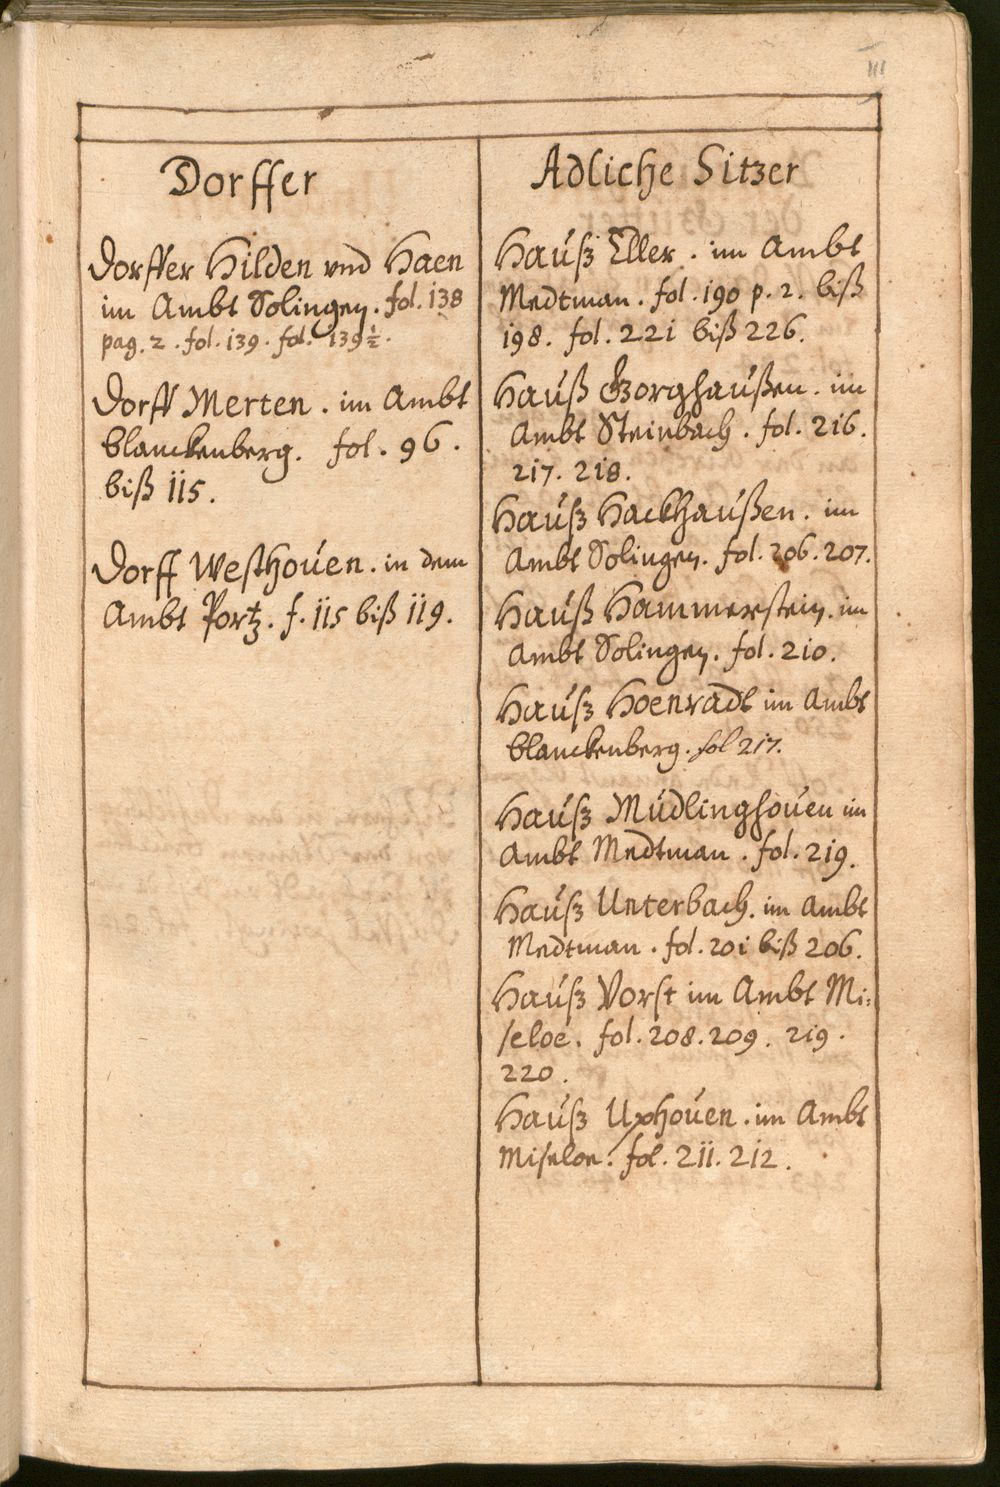 III
Dorffer
Dorffer Hilden vnd Haen
im Ambt Solingen. fol. 138
pag. 2. fol. 139. fol. 139½.
Dorff Merten. im Ambt
blanckenberg. fol. 96.
biß 115.
Dorff Westhouen. in dem
Ambt Portz. f. 115 biß 119.
Adliche Sitzer
Hauß Eller. im Ambt
Medtman. fol. 190 p. 2. biß
198. fol. 221 biß 226.
Hauß Gorghaußen. im
Ambt Steinbach. fol. 216.
217. 218.
Hauß Hackhaußen. im
Ambt Solingen. fol. 206. 207.
Hauß Hammerstein. im
Ambt Solingen. fol. 210.
Hauß Hoenradt im Ambt
blanckenberg. fol 217.
Hauß Mudlinghouen im
Ambt Medtman. fol. 219.
Hauß Unterbach. im Ambt
Medtman. fol. 201 biß 206.
Hauß Vorst im Ambt Mi:
seloe. fol. 208. 209. 219.
220.
Hauß Uphouen. im Ambt
Miseloe. fol. 211. 212.